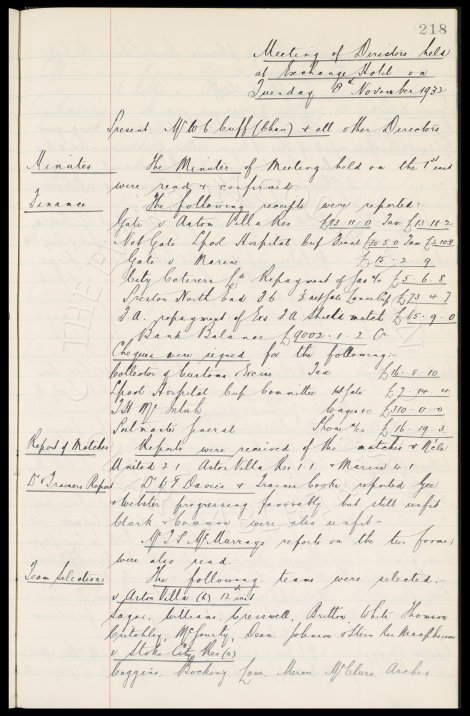 218
Meeting of Directors held
at Exchange Hotel on
Tuesday 8th November 1932
Present Mr W C Cuff (Chair) & all other Directors
Minutes The Minutes of Meeting held on the 1st inst
were read & confirmed.
Finance The following receipts were reported:-
Gate v Aston Villa Res £83-11-0 Tax £13-18-2
Net Gate Lpool Hospital Cup Final Tax
Gate v Marine £15-2-9
City Caterers Co Repayment of Gas a/c £5-6-8
Preston North End £73-4-7
F.A. repayment of Exs F A Shield match £65-9-0
Bank Balance £9002-1-2
Cheques were signed for the following:-
Collector of Customs & Excise Tax £16-8-10
Lpool Hospital Cup Committee Gate £7-14-4
T H McIntosh Wages &c £310-0-0
Postmaster General Phone a/cs £16-19-3
Report of Matches Reports were received of the matches v N'cle
United 2.1 Aston Villa Res 1.1 & Marine 4.1
Dr & Trainers Report Dr D T Davies & Trainer Cooke reported Gee
& Webster progressing favorably but still unfit
Clark & Common were also unfit-
Mr J S McMurrays reports on the two former
were also read.
Team Selection: The following teams were selected:-
v Aston Villa (h) 12th inst
Sagar, Williams, Cresswell, Britton, White Thomson
Critchley, McGourty, Dean Johnson & Stein Res
v Stoke City Res (a)
Coggins, Bocking Lowe, Mercer McClure, Archer